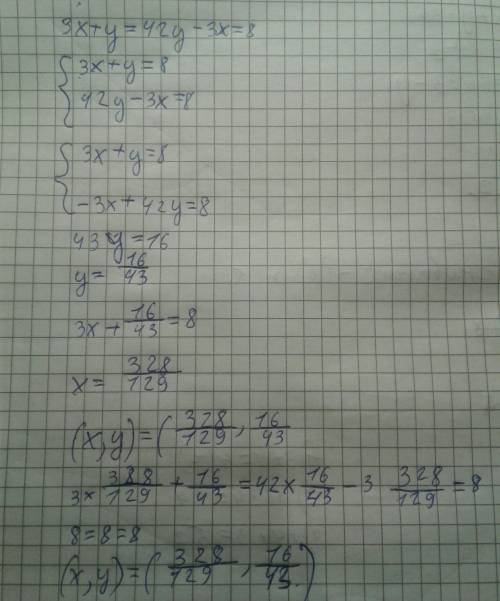 3x+y=42y-3x=8
{3x+y=8
42y-3x=8
{3x+y=8
-3x+42y=8
43y=16
y= 16/43
3x+ 16/43 =8
x= 328/129
(x,y)=( 328/129 , 16/43
3× 388/129 + 16/43 =42× 16/43 -3 328/129 =8
8=8=8
(x,y)=( 328/129 , 16/43. )